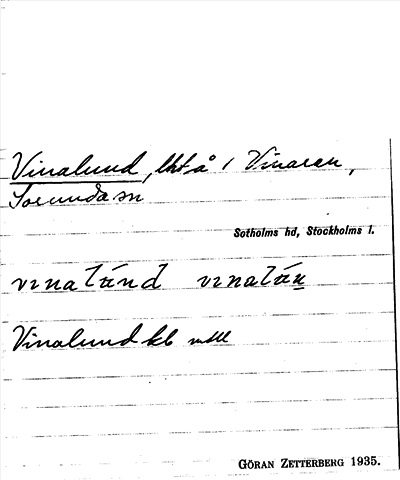 Vinalund, lht å / Vinaren,
Sorunda sn
Sotholms hd, Stockholms l.
vɪnalúnd vɪnalún
Vinalund kb
GÖRAN ZETTERBERG 1935.